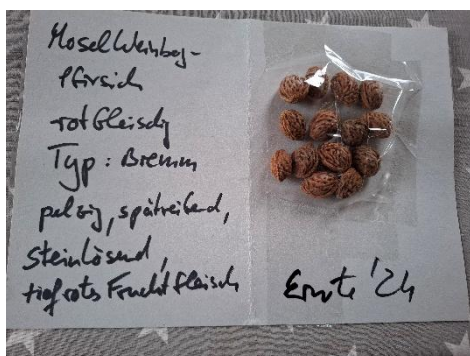 Mosel Weinberg-
Pfirsich
rotfleischig
Typ: Bremm
pelzig, spätreifend,
Steinlösend,
tiefrotes Fruchtfleisch
Ernte '24